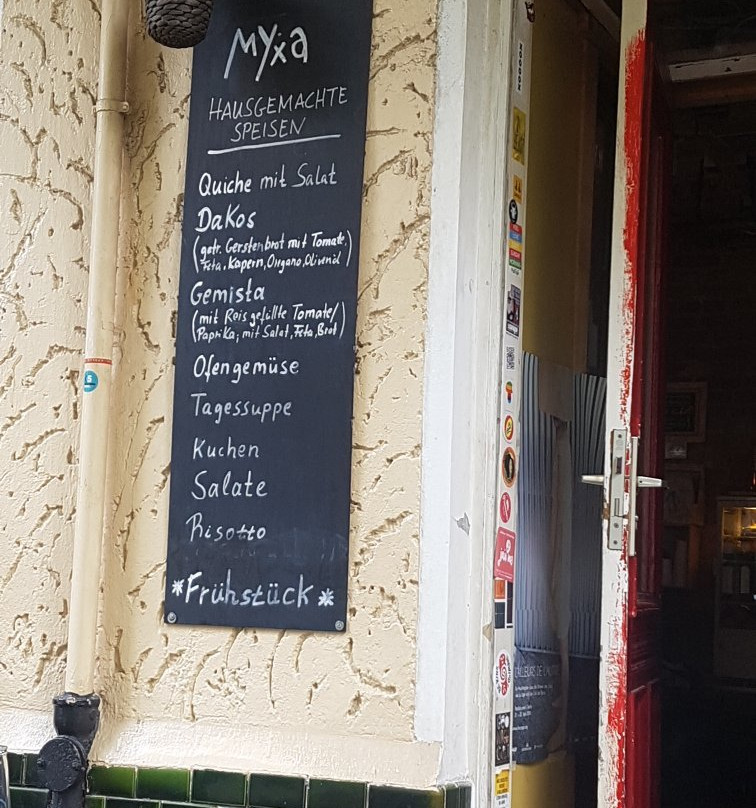 Myxa
HAUSGEMACHTE
SPEISEN
Quiche mit Salat
Dakos
(getr. Gerstenbrot mit Tomate,
Feta, Kapern, Oregano, Olivenöl)
Gemista
(mit Reis gefüllte Tomate/
Paprika; mit Salat, Feta, Brot)
Ofengemüse
Tagessuppe
Kuchen
Salate
Risotto
*Frühstück*